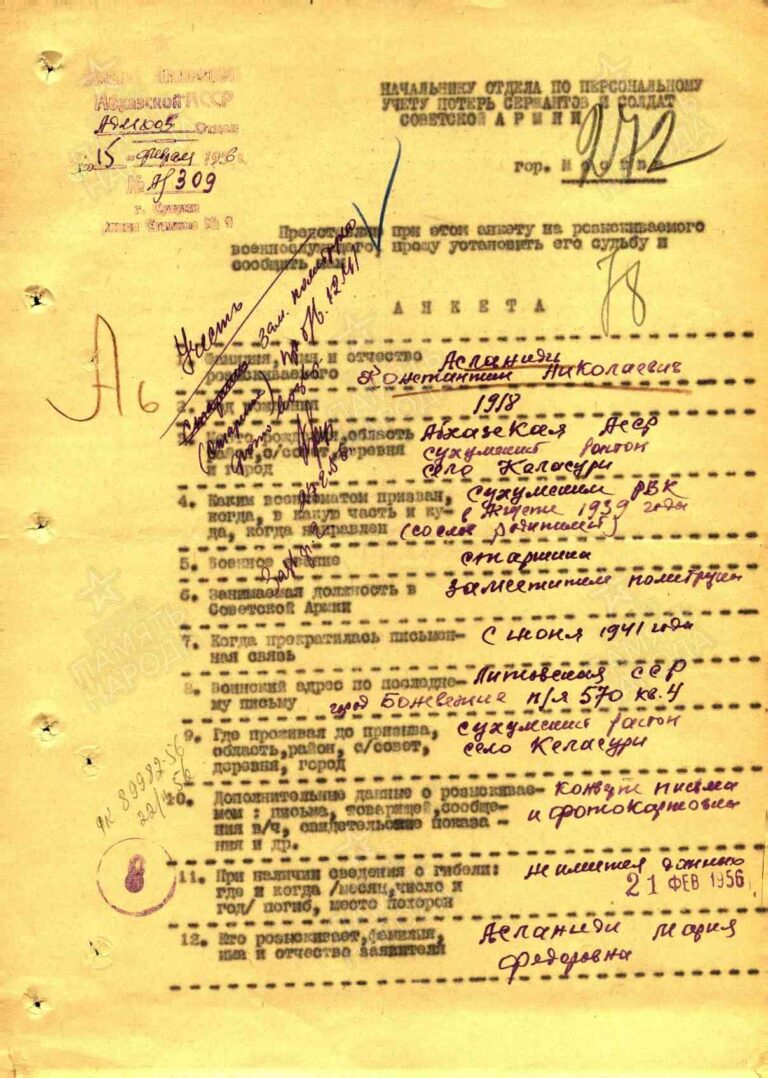 Абхазской АССР
Отдел
15 " феврал 1956 г.
№ А/309
г. Сухуми
НАЧАЛЬНИКУ ОТДЕЛА ПО ПЕРСОНАЛЬНОМУ
УЧЕТУ ПОТЕРЬ СЕРЖАНТОВ И СОЛДАТ
СОВЕТСКОЙ АРМИИ
272
гор. Москва
Представляя при этом анкету на розыскиваемого
военнослужащего, прошу установить его судьбу и
сообщить
78
АНКЕТА
Учесть
зам. политрука
12.41
А6
1. Фамилия, имя и отчество Асланиди
розыскиваемого Константин Николаевич
2. Год рождения 1918
3. рождения, область Абхазская АССР
район, с/совет, деревня Сухумский район
и город село Келасури
4. Каким военкоматом призван, Сухумским РВК
когда, в какую часть и ку- в Августе 1939 года
да, когда направлен (со слов родителей)
5. Военное звание старшина
6. Занимаемая должность в заместителем политрука
Советской Армии
7. Когда прекратилась письмен- с июня 1941 года
ная связь
8. Воинский адрес по последне- Литовская ССР
му письму город п/я 570 кв. 4
9. Где проживал до призыва, Сухумский район
область, район, с/совет, село Келасури
деревня, город
89982-56
10. Дополнительные данные о розыскивае- конверт письма
мом : письма, товарищей, сообще- и фотокарточка
ния в/ч, свидетельские показа -
ния и др.
11. При наличии сведения о гибели: не имеется
где и когда /месяц, число и 21 ФЕВ 1956
год/ погиб, место похорон
12. Кто розыскивает, фамилия, Асланиди Мария
имя и отчество заявителя Федоровна
ПАМЯТЬ
НАРОДА